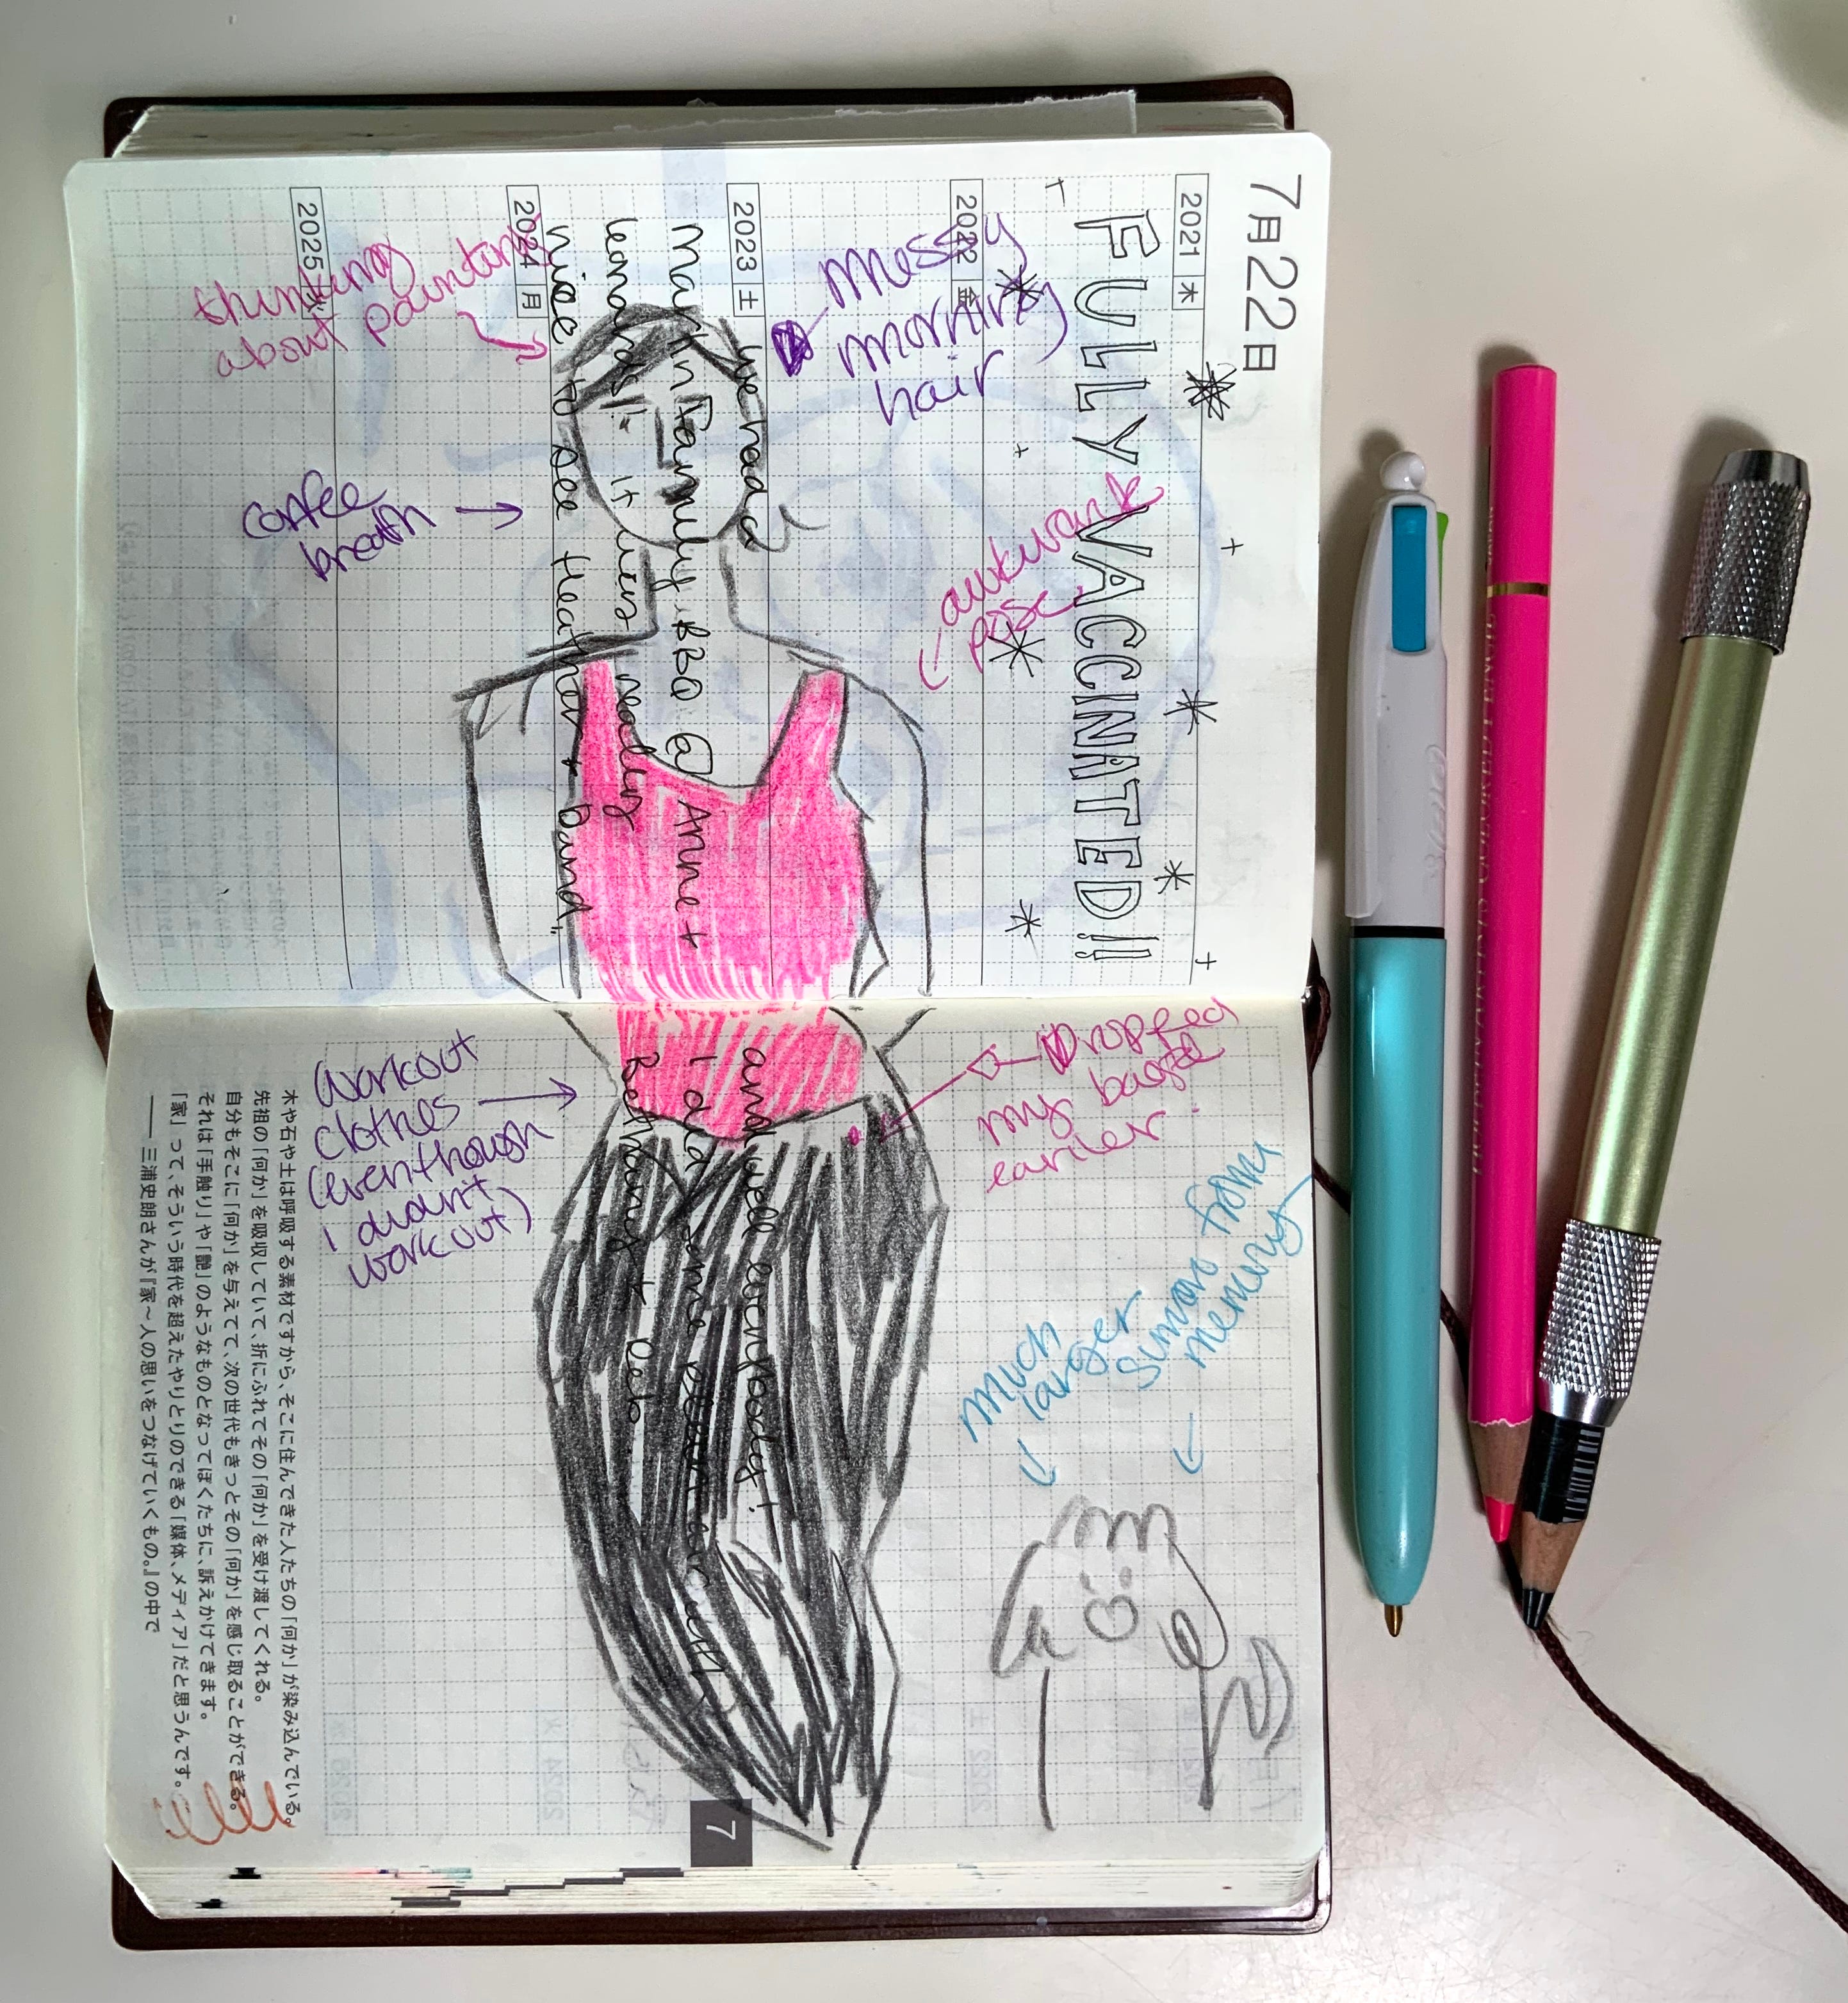 7月22日
2021 木
FULLY VACCINATED!!
2022 金
2023 土
2024 月
2025 火
We had a
Martin Family BBQ @ Anne +
Leonards! It was really
nice to see Heather + David,
messy
morning
hair
thinking
about painting
coffee
breath
awkward
pose
and well everybody!
I did some
Bethany + Deb
Dropped
my bagel
earlier.
workout
clothes
(even though
I didn't
workout)
much
larger
Simon from
memory
木や石や土は呼吸する素材ですから、そこに住んできた人たちの「何か」が染み込んでいる。
先祖の「何か」を吸収していて、折にふれてその「何か」を受け渡してくれる。
自分もそこに「何か」を与えてて、次の世代もきっとその「何か」を感じ取ることができる。
それは「手触り」や「艶」のようなものとなってぼくたちに、訴えかけてきます。
「家」って、そういう時代を超えたやりとりのできる「媒体、メディア」だと思うんです。
――三浦史朗さんが『家〜人の思いをつなげていくもの。』の中で
7